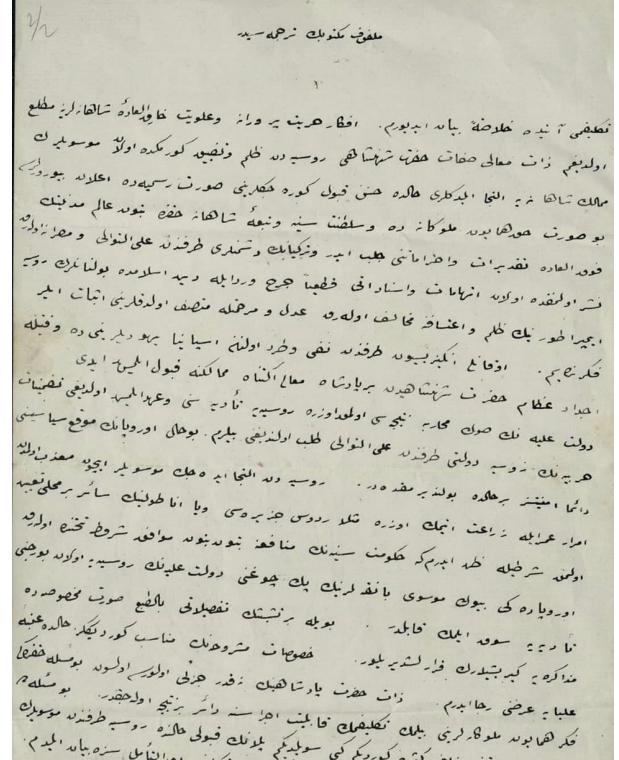 ٢/٢
ملفوف مكتوبك ترجمه سيدر
١
تكليفمى آتيده خلاصةً بيان ايديورم. افكار حريت پرورانه وعلويت خارق العادهٔ شاهانه لرينه مطلع
اولديغم ذات معالى صفات حضرت شهنشاهى روسيه دن ظلم وتضييق كورمكده اولان موسويلرك
ممالك شاهانه يه التجا ايلدكلرى حالده حسن قبول كوره جكلرينى صورت رسميه ده اعلان بيورورلرسه
بو صورت همايون ملوكانه ده وسلطنت سنيه وتبعهٔ شاهانه حقنده بتون عالم مدنيتك
فوق العاده تقديرات واحتراماتنى جلب ايدر وتركيانك دشمنلرى طرفندن على التوالى
نشر اولنمقده اولان اتهامات واسناداتى قطعياً جرح ورد ايله دين اسلامده بولنانلرك روسيه
ايمپراطورينك ظلم واعتسافنه مخالف اوله رق عدل ومرحمته متصف اولدقلرينى اثبات ايلر
فكرنده يم. اوقاتله انكيزيسيون طرفندن نفى وطرد اولنان اسپانيا يهوديلرينى ده وقتيله
اجداد عظام حضرت شهنشاهيدن بر پادشاه ممالكنه قبول ايلمش ايدى
دولت عليه نك صوك محاربه نتيجه سى اولمق اوزره روسيه يه تأديه سنى وعد ايلمش اولديغى تضمينات
حربيه نك روسيه دولتى طرفندن على التوالى طلب اولنديغى بيلرم. بو حالى اوروپانك موقع سياسيسنى
دائما امنيتسز بر حالده بولنديرمقده در. روسيه دن التجا ايده جك موسويلر ايچون
امرار عمر ايله زراعت ايتمك اوزره مثلا ردوس جزيره سى ويا اناطولينك سائر بر محلى تعيين
اولنمق شرطيله ظن ايدرم كه حكومت سنيه نك منافعنه بتون بتون موافق شروط تحتنده اوله رق
اوروپاده كى بيوك موسوى بانقه لرينك پك چوغنى دولت عليه نك روسيه يه اولان بورجنى
تأديه يه سوق ايلمك قابلدر. بويله بر تشبثك تفصيلاتى بالطبع صورت مخصوصه ده
مذاكره يه كيريشيله رك قرارلشديريلور. خصوصات مشروحه نك مناسب كورديككز حالده عتبهٔ
عليايه عرضنى رجا ايدرم. ذات حضرت پادشاهينك نه قدر اولورسه اولسون بو مسئله حقنده كى
فكر همايون ملوكانه لرينى بيلمك تكليفمك قابليت اجراسنه دائر بر نتيجه اوله جقدر. بو مسئله ده
كورديكم كبى سويلديكم پلانك قبولى حالنده روسيه طرفندن موسويلرك
سزه بيان ايلدم.